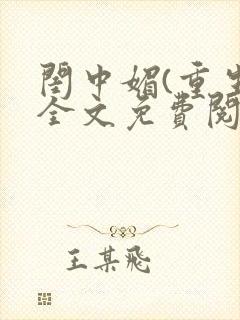 閨中媚(重生
全文免費閱
王某飛